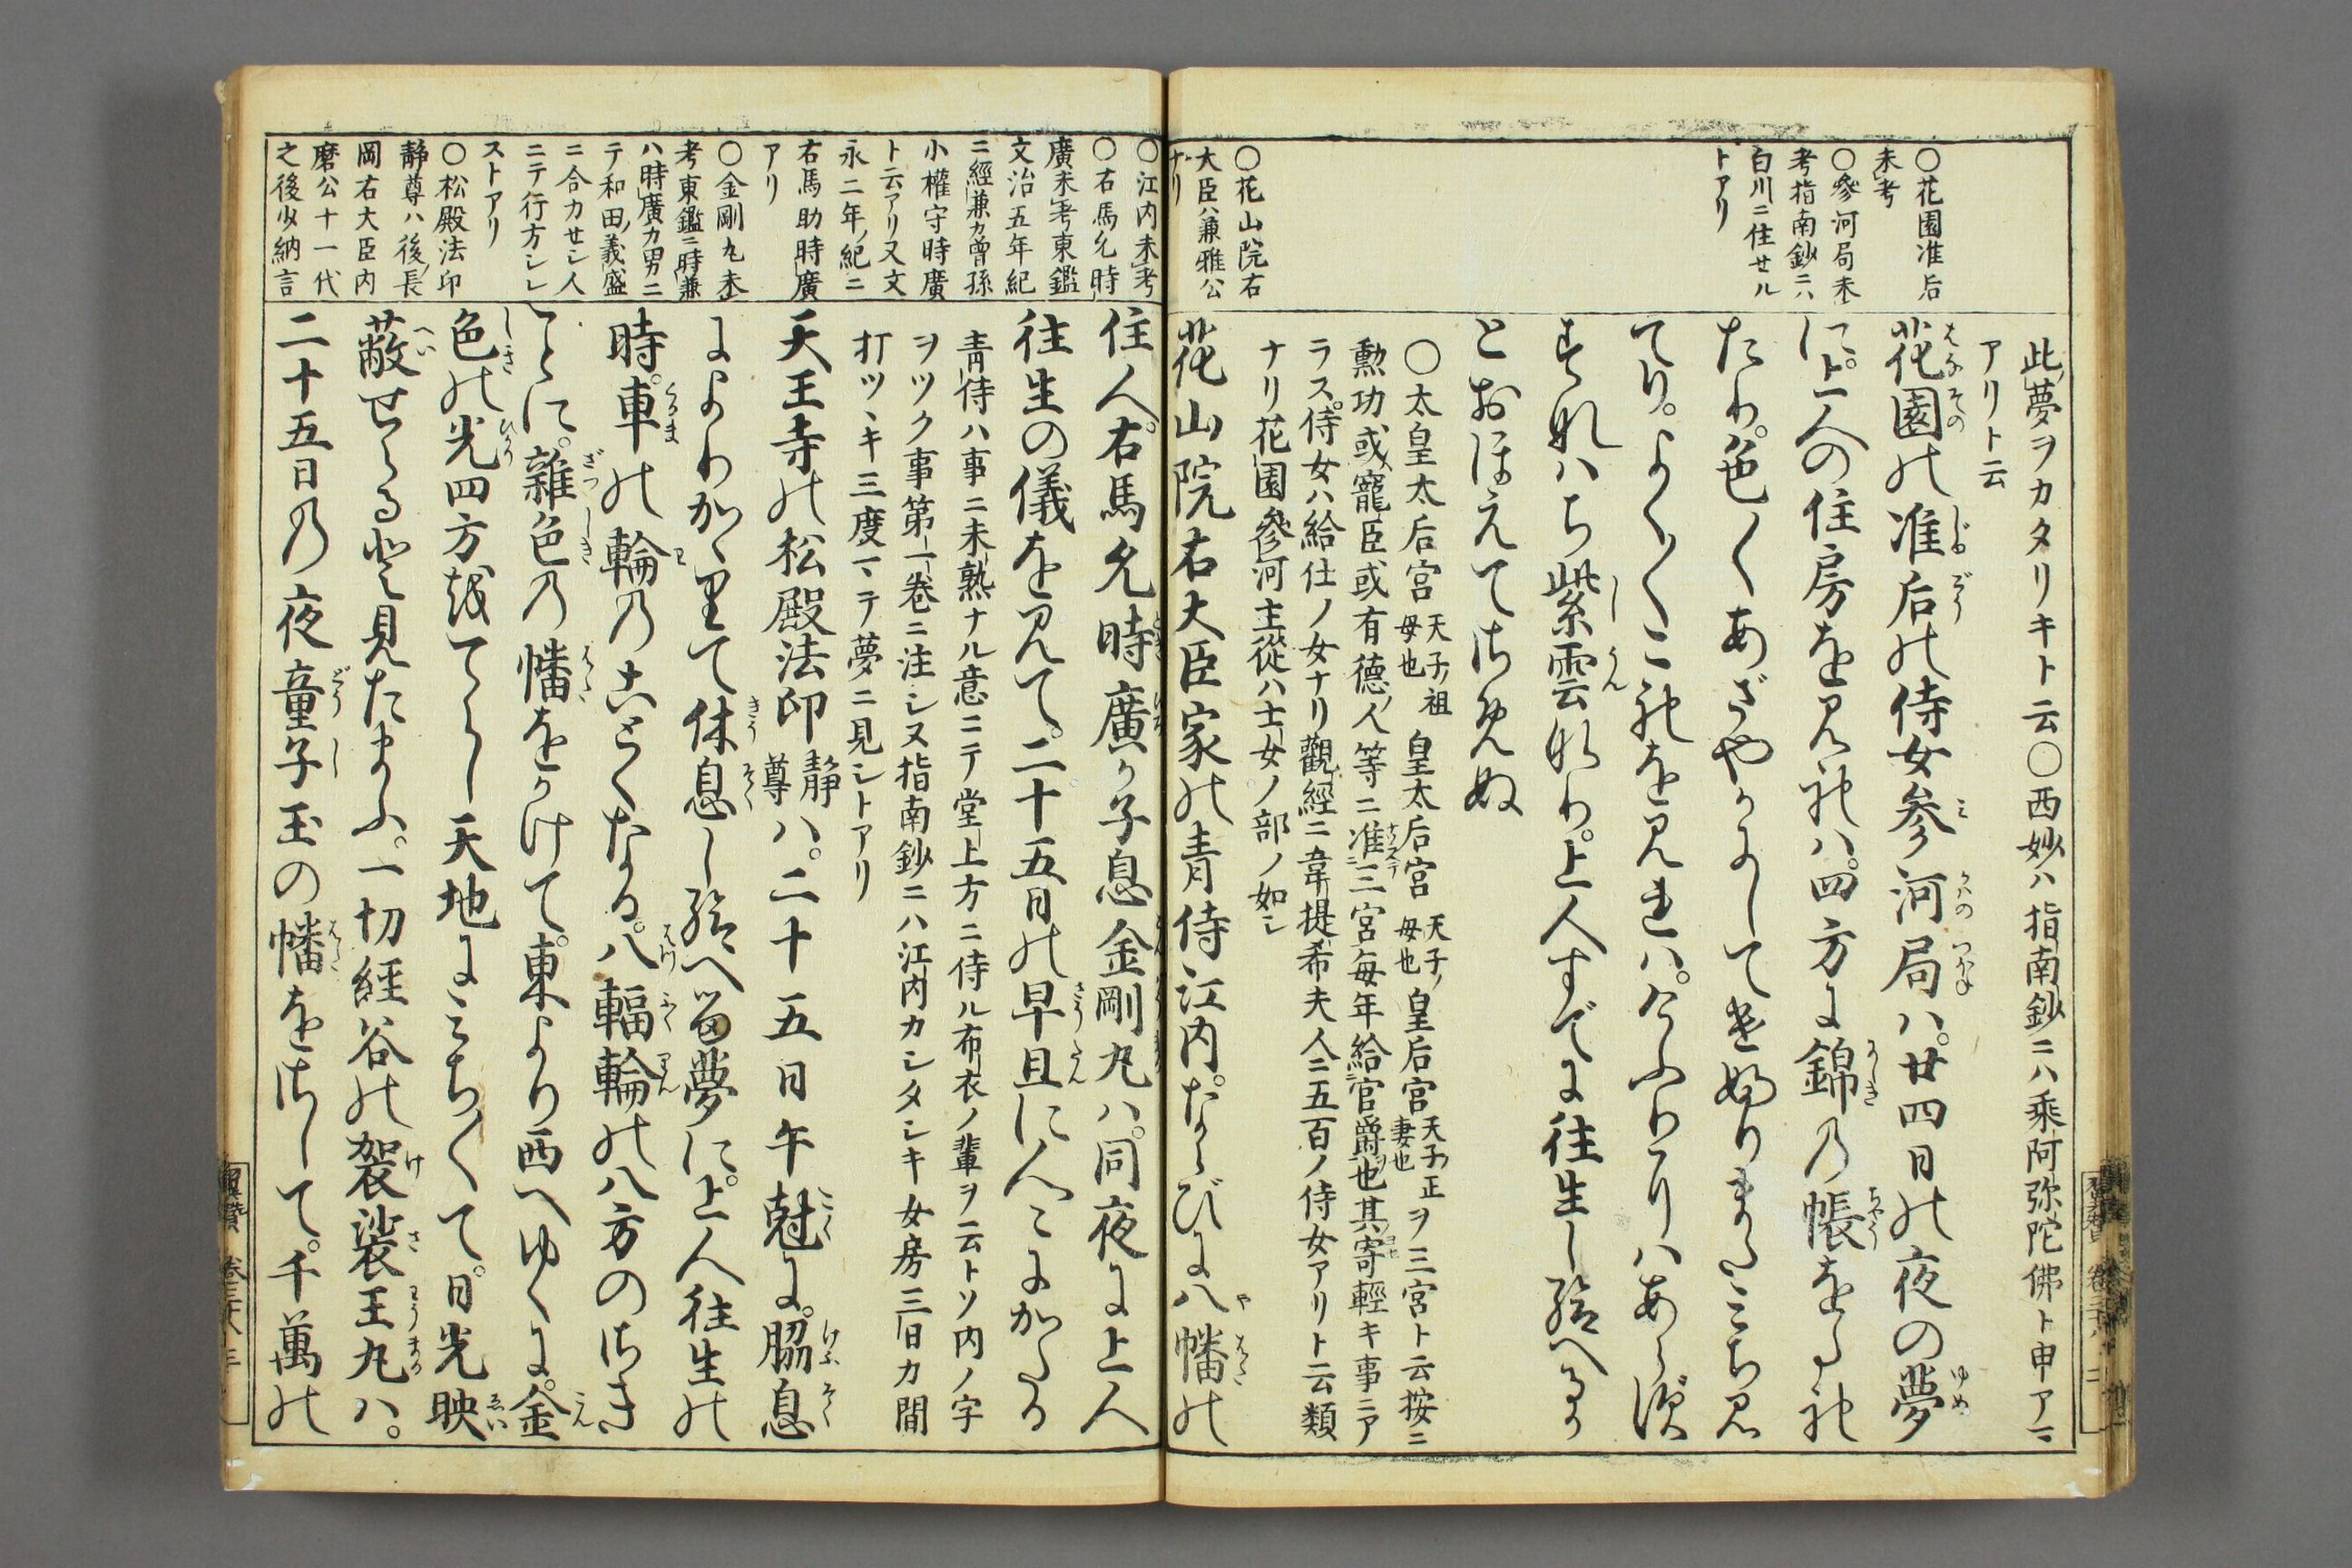 〇花園准后
未考
〇參河局未
考指南鈔ニハ
白川ニ住セル
トアリ
〇花山院右
大臣ハ兼雅公
ナリ
此夢ヲカタリキト云〇西妙ハ指南鈔ニハ乘阿弥陀佛ト申アマ
アリト云
花園の准后の侍女参河局ハ。廿四日の夜の夢
に。上人の住房を見れハ。四方に錦の帳をひけ
たり。色〱あざやかにして
てり。よく〱これを見れハ。けふりにハあらす
すなハち紫雲なり。上人すでに往生し給へるか
とおほえてさめぬ
〇太皇太后宮天子ノ祖母也皇太后宮天子ノ母也皇后宮天子ノ正妻也ヲ三宮ト云按ニ
勲功或寵臣或有德ノ人等ニ准三宮毎年給官爵也其寄輕キ事ニア
ラス侍女ハ給仕ノ女ナリ觀經ニ韋提希夫人ニ五百ノ侍女アリト云類
ナリ花園參河主從ハ士女ノ部ノ如シ
花山院右大臣家の青侍江内。ならびに八幡の
〇江内未考
〇右馬允時
廣未考東鑑
文治五年紀
ニ經兼カ曾孫
小權守時廣
ト云アリ又文
永二年ノ紀ニ
右馬助時廣
アリ
〇金剛丸未
考東鑑ニ時兼
ハ時廣カ男ニ
テ和田ノ義盛
ニ合力セシ人
ニテ行方シレ
ストアリ
〇松殿法印
靜尊ハ後ノ長
岡右大臣内
麿公十一代
之後少納言
住人。右馬允時廣か子息金剛丸ハ。同夜に上人
往生の儀を見て。二十五日の早旦に人〻にかたる
青侍ハ事ニ未熟ナル意ニテ堂上方ニ侍ル布衣ノ輩ヲ云トソ内ノ字
ヲツク事第一卷ニ注シヌ指南鈔ニハ江内カシタシキ女房三日カ間
打ツヽキ三度マテ夢ニ見シトアリ
天王寺の松殿法印靜尊ハ。二十五日午尅に。脇息
によりかゝりて休息し給へる夢に。上人往生の
時。車の輪のことくなる。八輻輪の八方のさき
ことに。雜色の幡をかけて。東より西へゆくに。金
色の光四方を てらし天地にみち〱て。日光映
蔽せらると見たまふ。一切經谷の袈裟王丸ハ。
二十五日の夜童子玉の幡をさして。千萬の